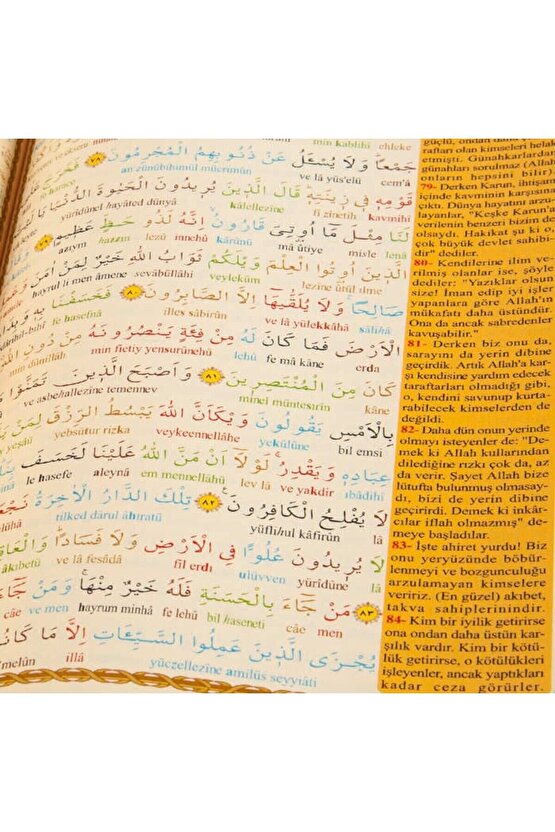 min kablihî ehleke
جَمْعًا وَلَا يُسْـَٔلُ عَنْ ذُنُوبِهِمُ الْمُجْرِمُونَ ﴿٧٨﴾ فَخَرَجَ
an zünûbihumül mücrimûn ve lâ yüs'elü cem'â
قَوْمِهِ فِي زِينَتِهِ قَالَ الَّذِينَ يُرِيدُونَ الْحَيٰوةَ الدُّنْيَا
yürîdünel hayâted dünyâ kâlellezîne fî zînetih kavmihî
لَنَا مِثْلَ مَا أُوتِيَ قَارُونُ إِنَّهُ لَذُو حَظٍّ عَظِيمٍ ﴿٧٩﴾
azıym hazzın lezû innehû kârûnü mâ ûtiye misle lenâ
الَّذِينَ أُوتُوا الْعِلْمَ وَيْلَكُمْ ثَوَابُ اللهِ خَيْرٌ لِمَنْ اٰمَنَ
hayrul li men âmene sevâbüllâhi veyleküm lezîne ûtül ılme
صَالِحًا وَلَا يُلَقّٰيهَا إِلَّا الصَّابِرُونَ ﴿٨٠﴾ فَخَسَفْنَا
fe hasefnâ illes sâbirûn ve lâ yülekkâhâ sâlihâ
الْأَرْضَ فَمَا كَانَ لَهُ مِنْ فِئَةٍ يَنْصُرُونَهُ
min fietiy yensurûnehû lehû fe mâ kâne erda
كَانَ مِنَ الْمُنْتَصِرِينَ ﴿٨١﴾ وَأَصْبَحَ الَّذِينَ تَمَنَّوْا
ve asbehallezîne temennev minel müntesırîn kâne
بِالْأَمْسِ يَقُولُونَ وَيْكَأَنَّ اللهَ يَبْسُطُ الرِّزْقَ لِمَنْ
yebsütur rizka veykeennellâhe yekûlûne bil emsi
عِبَادِهِ وَيَقْدِرُ لَوْلَا أَنْ مَنَّ اللهُ عَلَيْنَا لَخَسَفَ
le hasefe aleynâ em mennellahü lev lâ ve yakdir ıbâdihî
لَا يُفْلِحُ الْكَافِرُونَ ﴿٨٢﴾ تِلْكَ الدَّارُ الْاٰخِرَةُ
tilked dârul âhıratü yüflihul kâfirûn lâ
لَا يُرِيدُونَ عُلُوًّا فِي الْأَرْضِ وَلَا فَسَادًا
ve lâ fesâdâ fil erdı ulüvven yürîdûne lâ
﴿٨٣﴾ مَنْ جَاءَ بِالْحَسَنَةِ فَلَهُ خَيْرٌ مِنْهَا وَمَنْ جَاءَ
câe ve men hayrum minhâ fe lehû bil haseneti câe men
يُجْزَى الَّذِينَ عَمِلُوا السَّيِّئَاتِ إِلَّا مَا كَانُوا
illâ yüczellezîne amilüs seyyiâti
rafları olan kimseleri helak
etmişti. Günahkarlardan
günahları sorulmaz (Allah
onların hepsini bilir)
79- Derken Karun, ihtişamı
içinde kavminin karşısına
çıktı. Dünya hayatını arzu-
layanlar, "Keşke Karun'a
verilenin benzeri bizim de
olsaydı. Hakikat şu ki o,
çok büyük devlet sahibi-
dir" dediler.
80- Kendilerine ilim ve-
rilmiş olanlar ise, şöyle
dediler: "Yazıklar olsun
size! İman edip iyi işler
yapanlara göre Allah'ın
mükafatı daha üstündür.
Ona da ancak sabredenler
kavuşabilir."
81- Derken biz onu da,
sarayını da yerin dibine
geçirdik. Artık Allah'a kar-
şı kendisine yardım edecek
taraftarları olmadığı gibi,
o, kendini savunup kurta-
rabilecek kimselerden de
değildi.
82- Daha dün onun yerinde
olmayı isteyenler de: "De-
mek ki Allah kullarından
dilediğine rızkı çok da, az
da verir. Şayet Allah bize
lütufta bulunmuş olmasay-
dı, bizi de yerin dibine
geçirirdi. Demek ki inkâr-
cılar iflah olmazmış" de-
meye başladılar.
83- İşte ahiret yurdu! Biz
onu yeryüzünde böbür-
lenmeyi ve bozgunculuğu
arzulamayan kimselere
veririz. (En güzel) akıbet,
takva sahiplerinindir.
84- Kim bir iyilik getirirse
ona ondan daha üstün kar-
şılık vardır. Kim bir kötü-
lük getirirse, o kötülükleri
işleyenler, ancak yaptıkları
kadar ceza görürler.